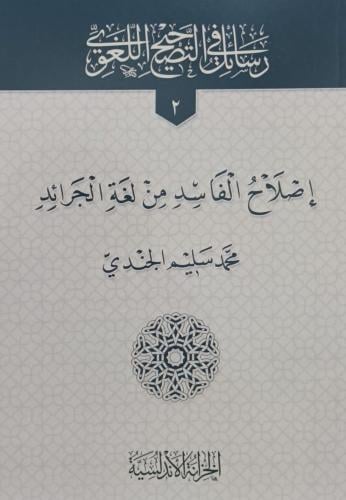 رسائل في التصحيح اللغوي
٢
إِصْلَاحُ الْفَاسِدِ مِنْ لُغَةِ الْجَرَائِدِ
محمد سليم الجندي
الخزانة الأندلسية